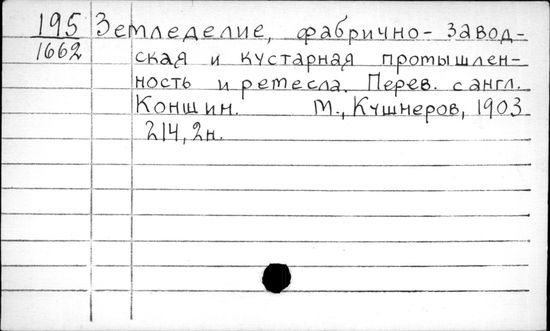 195 Земледелие, фабрично-завод-
1662 ская и кустарная промышлен-
ность и ремесла. Перев. с англ.
Коншин. М., Кушнеров, 1903
214, 2н.